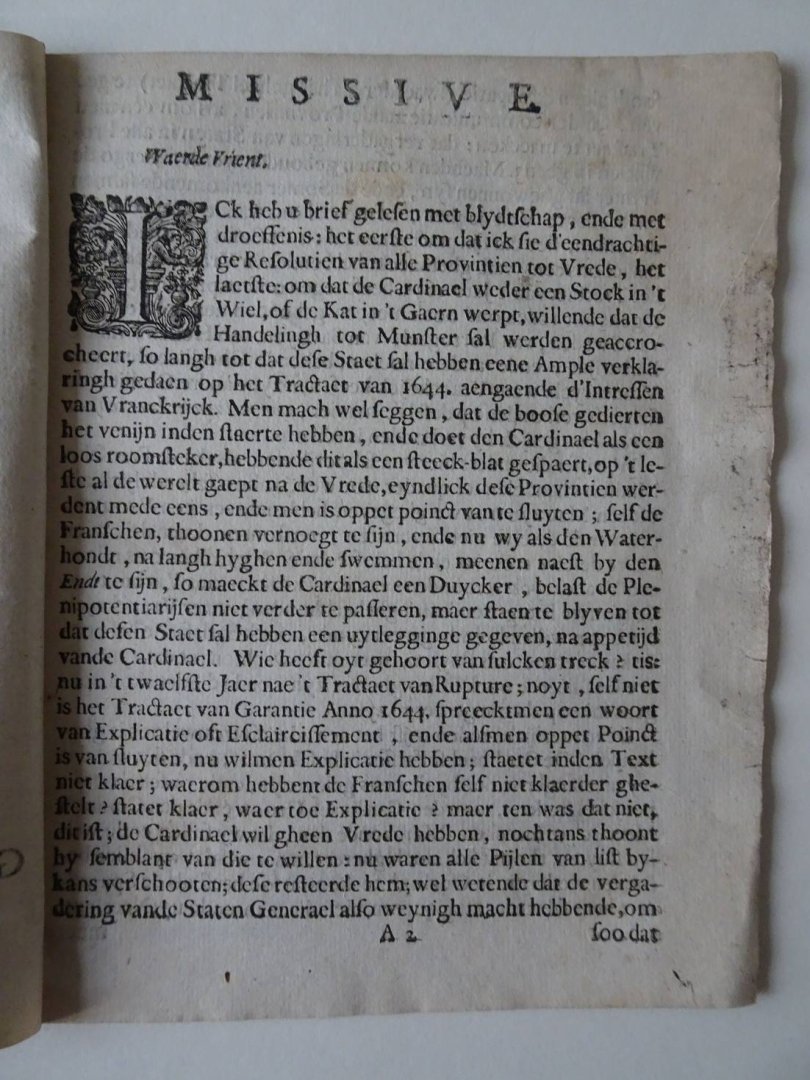 MISSIVE.
Waerde Vrient,
ICk heb u brief gelesen met blydtschap, ende met
droeffenis: het eerste om dat ick sie d'eendrachti-
ge Resolutien van alle Provintien tot Vrede, het
laetste: om dat de Cardinael weder een Stock in 't
Wiel, of de Kat in 't Gaern werpt, willende dat de
Handelingh tot Munster sal werden geaccro-
cheert, so langh tot dat dese Staet sal hebben eene Ample verkla-
ringh gedaen op het Tractaet van 1644. aengaende d'Intressen
van Vranckrijck. Men mach wel seggen, dat de boose gedierten
het venijn inden staerte hebben, ende doet den Cardinael als een
loos roomsteker, hebbende dit als een steeck-blat gespaert, op 't le-
ste al de werelt gaept na de Vrede, eyndlick dese Provintien wer-
dent mede eens, ende men is oppet poinct van te sluyten; self de
Franschen, thoonen vernoegt te sijn, ende nu wy als den Water-
hondt, na langh hyghen ende swemmen, meenen naest by den
Endt te sijn, so maeckt de Cardinael een Duycker, belast de Ple-
nipotentiarijsen niet verder te passeren, maer staen te blyven tot
dat desen Staet sal hebben een uytlegginge gegeven, na appetijd
vande Cardinael. Wie heeft oyt gehoort van sulcken treck? tis:
nu in 't twaelfste Jaer nae 't Tractaet van Rupture; noyt, self niet
is het Tractaet van Garantie Anno 1644. spreecktmen een woort
van Explicatie oft Esclaircissement, ende alsmen oppet Poinct
is van sluyten, nu wilmen Explicatie hebben; staetet inden Text
niet klaer; waerom hebbent de Franschen self niet klaerder ghe-
stelt? statet klaer, waer toe Explicatie? maer ten was dat niet,
dit ist; de Cardinael wil gheen Vrede hebben, nochtans thoont
hy semblant van die te willen: nu waren alle Pijlen van list by-
kans verschooten; dese resteerde hem; wel wetende dat de verga-
dering vande Staten Generael also weynigh macht hebbende, om
A 2 soo dat